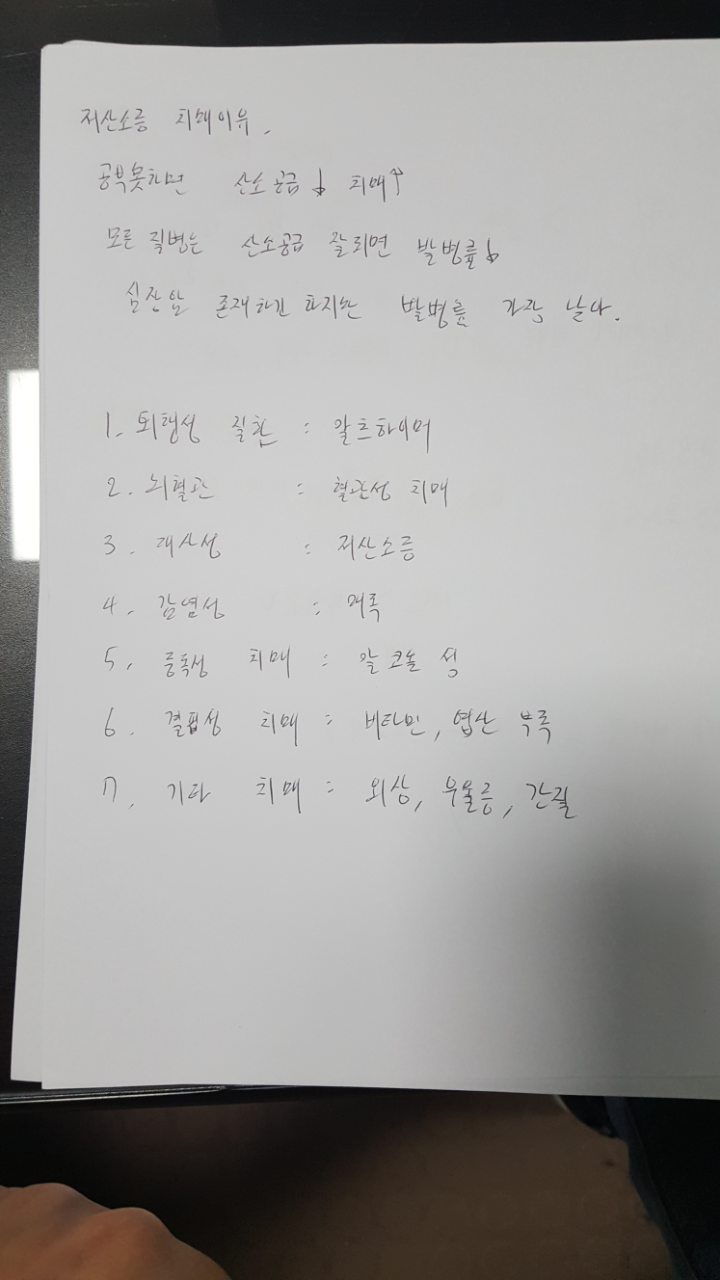 저산소증 치매이유.
공부못하면 산소공급↓ 치매↑
모든 질병은 산소공급 잘되면 발병률↓
심장암 존재하긴 하지만 발병률 가장 낮다.
1. 퇴행성 질환 : 알츠하이머
2. 뇌혈관 : 혈관성 치매
3. 대사성 : 저산소증
4. 감염성 : 매독
5. 중독성 치매 : 알코올 성
6. 결핍성 치매 : 비타민, 엽산 부족
7. 기타 치매 : 외상, 우울증, 간질